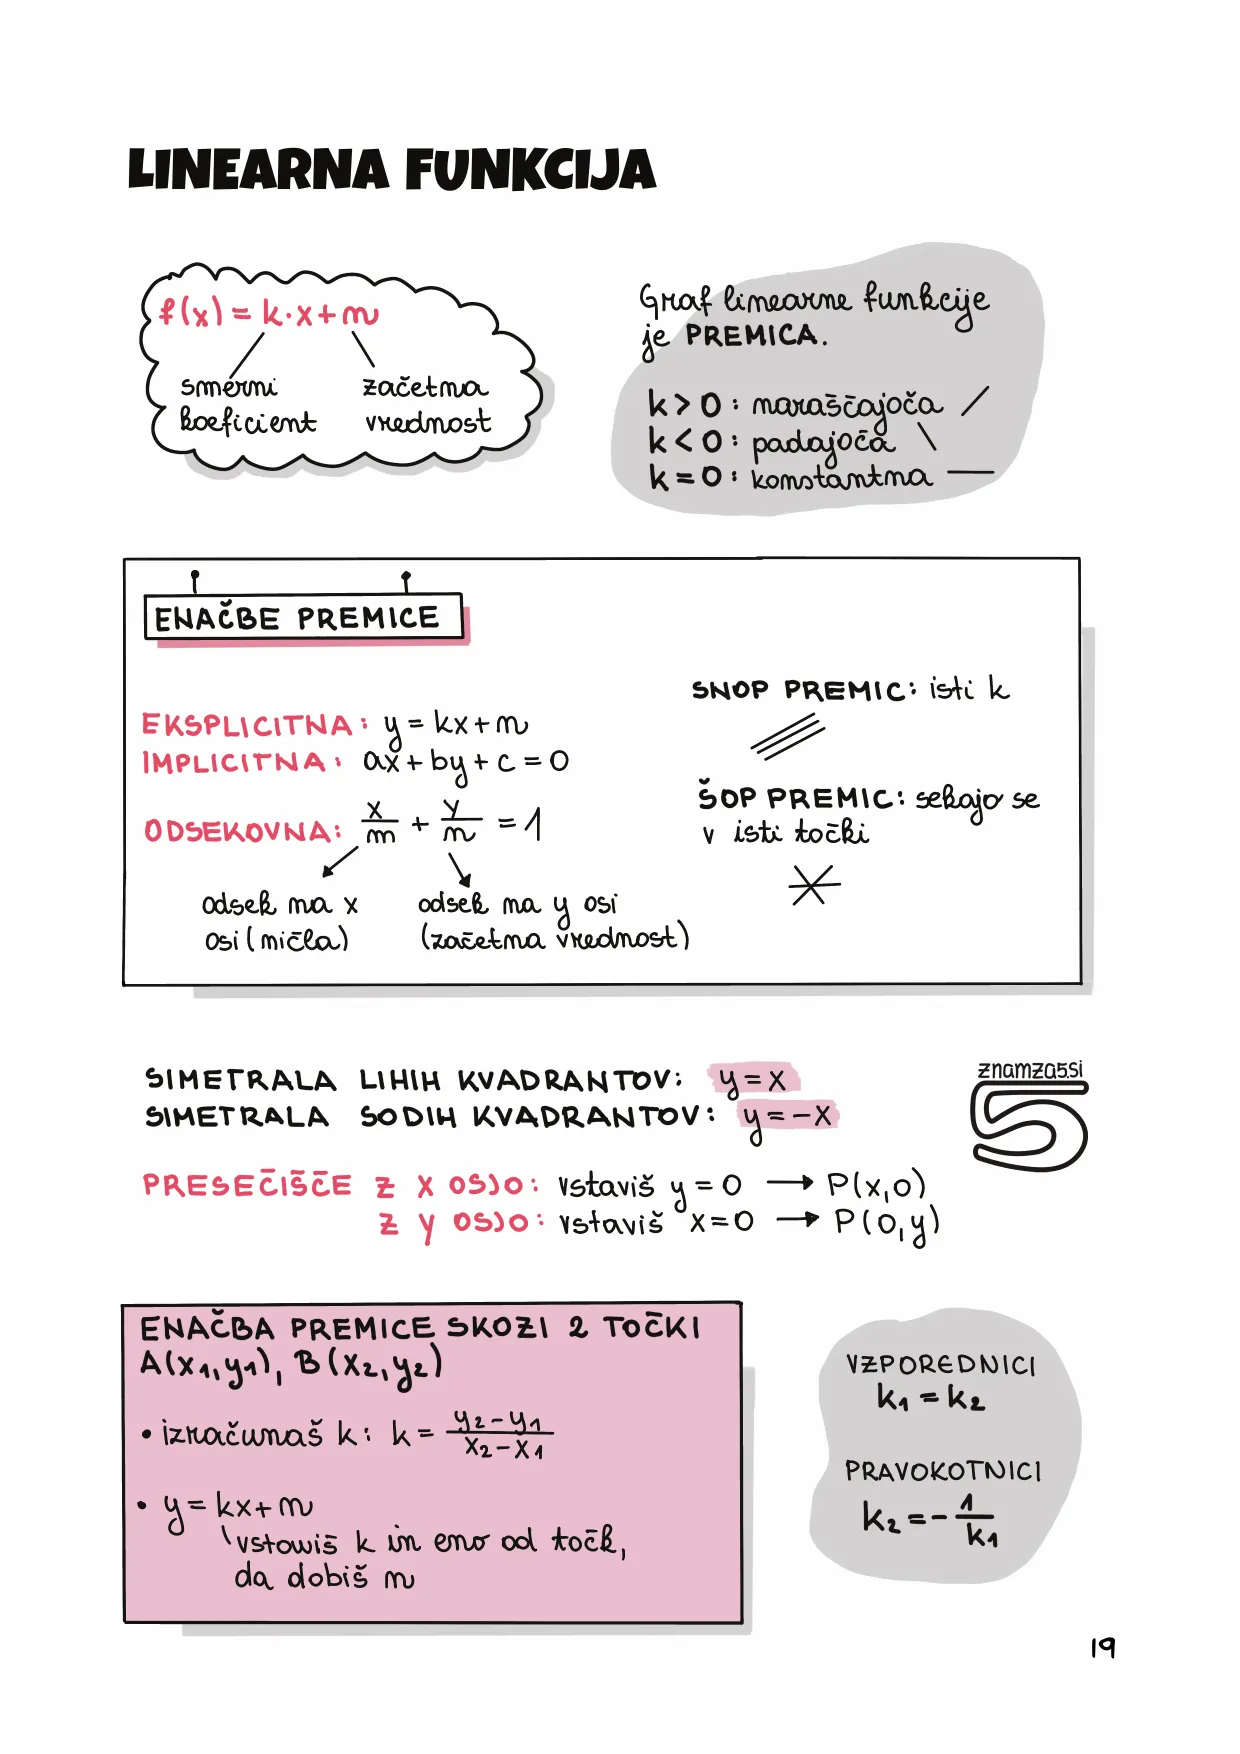 LINEARNA FUNKCIJA
f(x) = k·x+n
smerni koeficient
začetna vrednost
Graf linearne funkcije
je PREMICA.
k>0: naraščajoča /
k<0: padajoča \
k=0: konstantna —
ENAČBE PREMICE
EKSPLICITNA: y = kx+n
IMPLICITNA: ax+by+c=0
ODSEKOVNA: x/m + y/n = 1
odsek na x
osi (ničla)
odsek na y osi
(začetna vrednost)
SNOP PREMIC: isti k
ŠOP PREMIC: sekajo se
v isti točki
SIMETRALA LIHIH KVADRANTOV: y=x
SIMETRALA SODIH KVADRANTOV: y=-x
znamza5si
5
PRESEČIŠČE Z X OSJO: vstaviš y=0 → P(x,0)
Z Y OSJO: vstaviš x=0 → P(0,y)
ENAČBA PREMICE SKOZI 2 TOČKI
A(x₁,y₁), B(x₂,y₂)
• izračunaš k: k = y₂-y₁/x₂-x₁
• y=kx+n
vstaviš k in eno od točk,
da dobiš n
VZPOREDNICI
k₁=k₂
PRAVOKOTNICI
k₂=-1/k₁
19